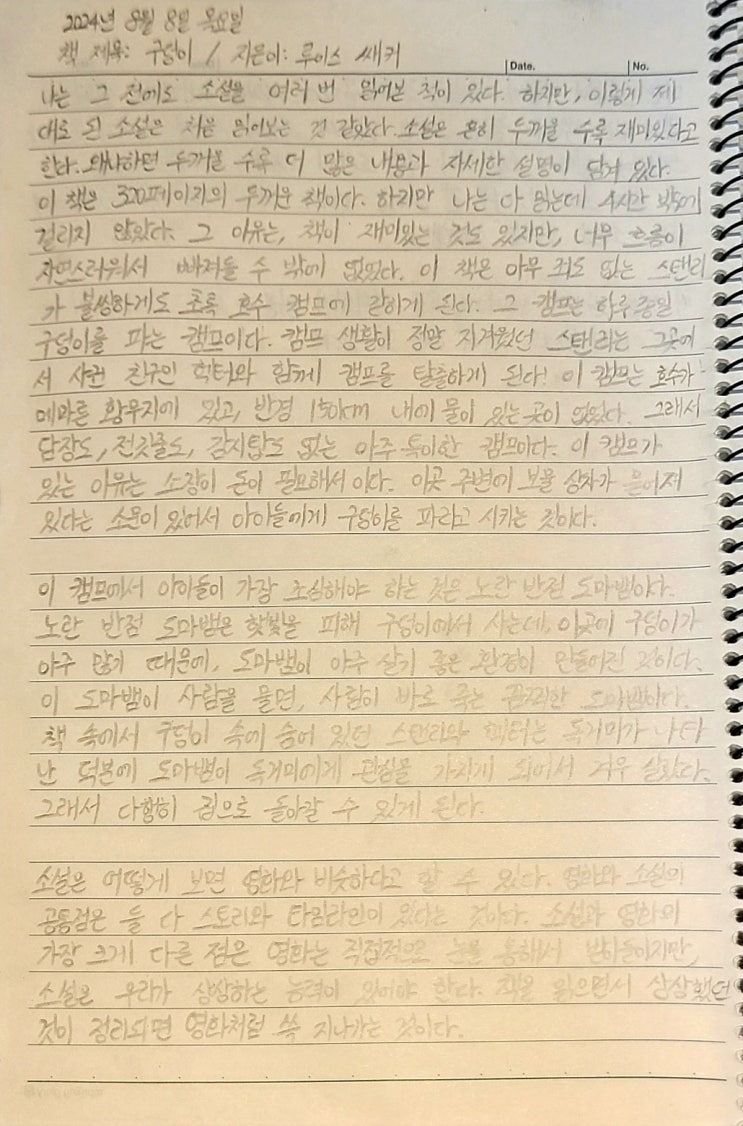 2024년 8월 8일 목요일
책 제목: 구덩이 / 지은이: 루이스 쌔커
Date. No.
나는 그 전에도 소설을 여러 번 읽어본 적이 있다. 하지만, 이렇게 제
대로 된 소설은 처음 읽어보는 것 같았다. 소설은 흔히 두꺼울 수록 재미있다고
한다. 왜냐하면 두꺼울 수록 더 많은 내용과 자세한 설명이 담겨 있다.
이 책은 320페이지의 두꺼운 책이다. 하지만 나는 다 읽는데 4시간 밖에
걸리지 않았다. 그 이유는, 책이 재미있는 것도 있지만, 너무 흐름이
자연스러워서 빠져들 수 밖에 없었다. 이 책은 아무 죄도 없는 스탠리
가 불쌍하게도 초록 호수 캠프에 갇히게 된다. 그 캠프는 하루 종일
구덩이를 파는 캠프이다. 캠프 생활이 정말 지겨웠던 스탠리는 그곳에
서 사귄 친구인 헥터와 함께 캠프를 탈출하게 된다! 이 캠프는 호수가
메마른 황무지에 있고, 반경 150km 내에 물이 있는 곳이 없었다. 그래서
담장도, 전깃줄도, 감시탑도 없는 아주 특이한 캠프이다. 이 캠프가
있는 이유는 소장이 돈이 필요해서 이다. 이곳 주변에 보물 상자가 묻어져
있다는 소문이 있어서 아이들에게 구덩이를 파라고 시키는 것이다.
이 캠프에서 아이들이 가장 조심해야 하는 것은 노란 반점 도마뱀이다.
노란 반점 도마뱀은 햇빛을 피해 구덩이에서 사는데, 이곳에 구덩이가
아주 많기 때문에, 도마뱀이 아주 살기 좋은 환경이 만들어진 것이다.
이 도마뱀이 사람을 물면, 사람이 바로 죽는 끔찍한 도마뱀이다.
책 속에서 구덩이 속에 숨어 있던 스탠리와 헥터는 독거미가 나타
난 덕분에 도마뱀이 독거미에게 관심을 가지게 되어서 겨우 살았다.
그래서 다행히 집으로 돌아갈 수 있게 된다.
소설은 어떻게 보면 영화와 비슷하다고 할 수 있다. 영화와 소설의
공통점은 둘 다 스토리와 타임라인이 있다는 것이다. 소설과 영화의
가장 크게 다른 점은 영화는 직접적으로 눈을 통해서 받아들이지만,
소설은 우리가 상상하는 능력이 있어야 한다. 책을 읽으면서 상상했던
것이 정리되면 영화처럼 쓱 지나가는 것이다.